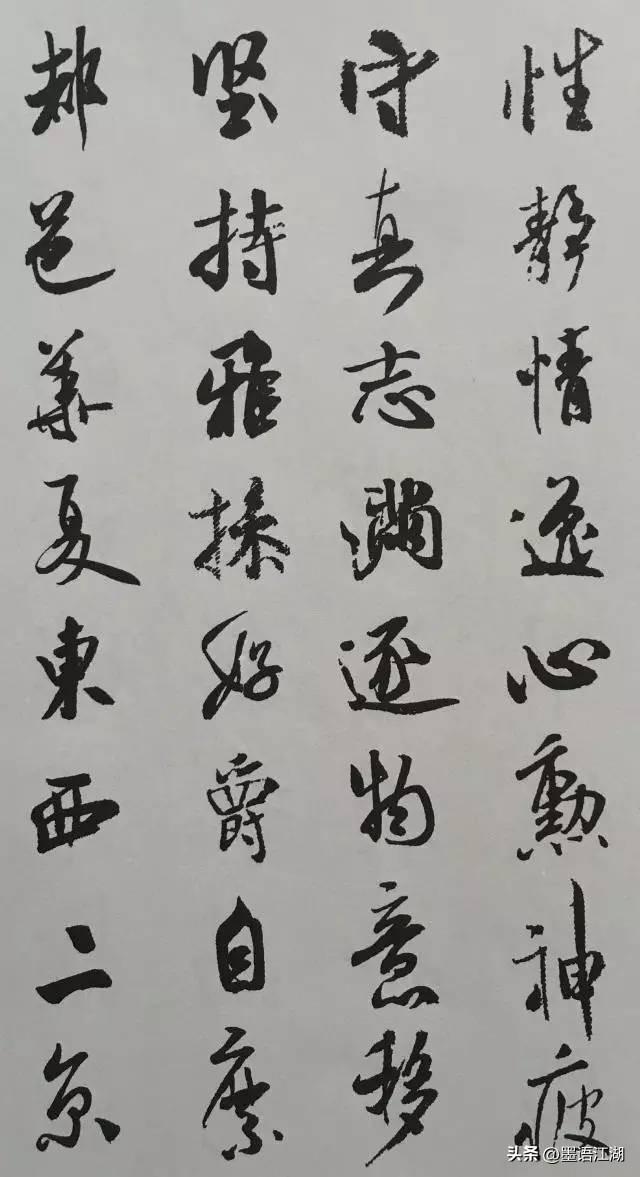 性靜情逸心勳神疲
守真志滿逐物意移
堅持雅操好爵自縻
都邑華夏東西二京
头条 @墨语江湖